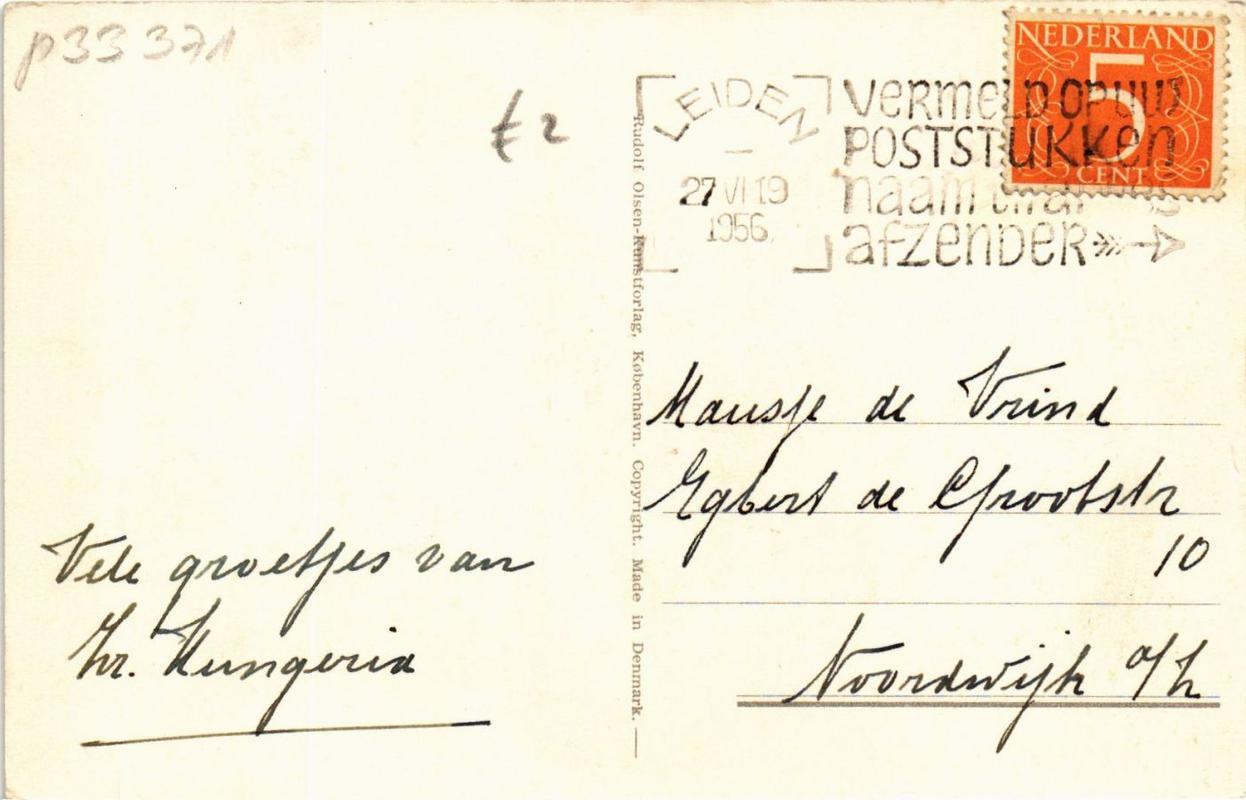 p33 371
£2
LEIDEN
27 VI 19
1956
VERMELD OP UW
POSTSTUKKEN
naam
afZENDER
NEDERLAND
5
CENT
Rudolf Olsen-Kunstforlag, København. Copyright. Made in Denmark.
Mausje de Vrind
Egbert de Grootstr
10
Noordwijk a/Z
Vele groetjes van
Zr. Hungeria